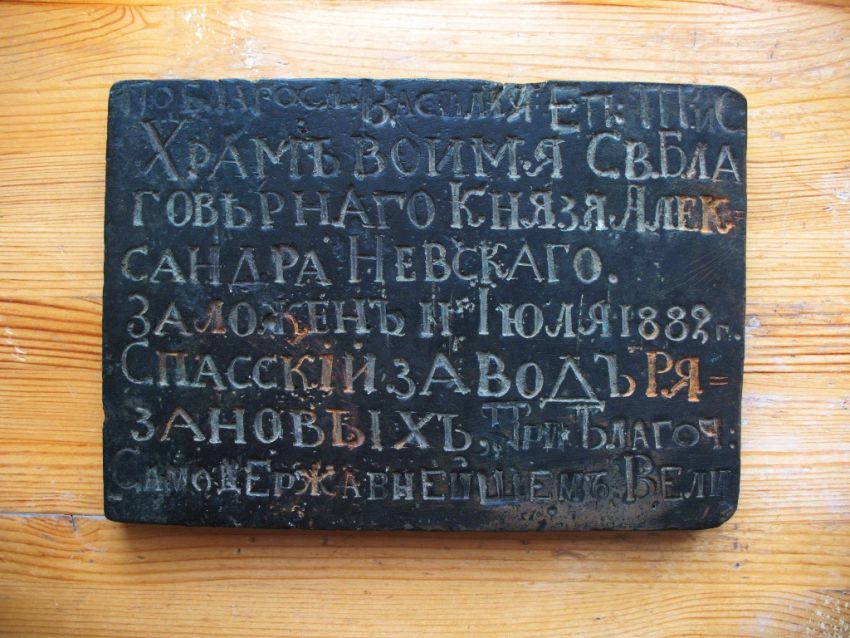 по Благосл: Василия Еп:
Храмъ во имя Св. Бла
говѣрнаго Князя Алек=
сандра Невскаго.
Заложенъ 11го Iюля 1882 г.
Спасскій заводъ Ря=
зановыхъ, При Благоч:
Самодержавнейшемъ Вели